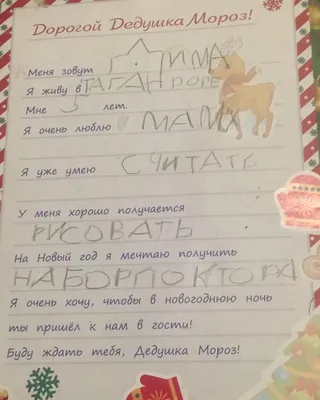 Дорогой Дедушка Мороз!
Меня зовут ДИМА
Я живу в ТАГАНРОГЕ
Мне 5 лет.
Я очень люблю МАМУ
Я уже умею СЧИТАТЬ
У меня хорошо получается
РИСОВАТЬ
На Новый год я мечтаю получить
НАБОР ДОКТОРА
Я очень хочу, чтобы в новогоднюю ночь
ты пришёл к нам в гости!
Буду ждать тебя, Дедушка Мороз!